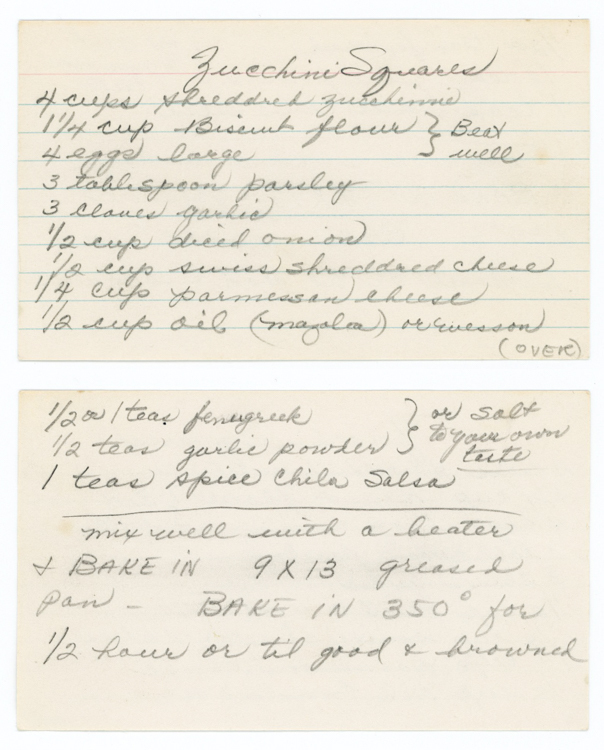 Zucchini Squares
4 cups shreddred zucchinnie
1 1/4 cup Biscuit flour } Beat
4 eggs large } well
3 tablespoon parsley
3 cloves garlic
1/2 cup diced onion
1/2 cup swiss shreddred cheese
1/4 cup parmessan cheese
1/2 cup oil (mazola) or wesson
(OVER)
1/2 or 1 teas fenugreek } or salt
1/2 teas garlic powder } to your own
taste
1 teas spice Chila Salsa
mix well with a beater
& BAKE IN 9 X 13 greased
pan - BAKE IN 350° for
1/2 hour or til good & browned